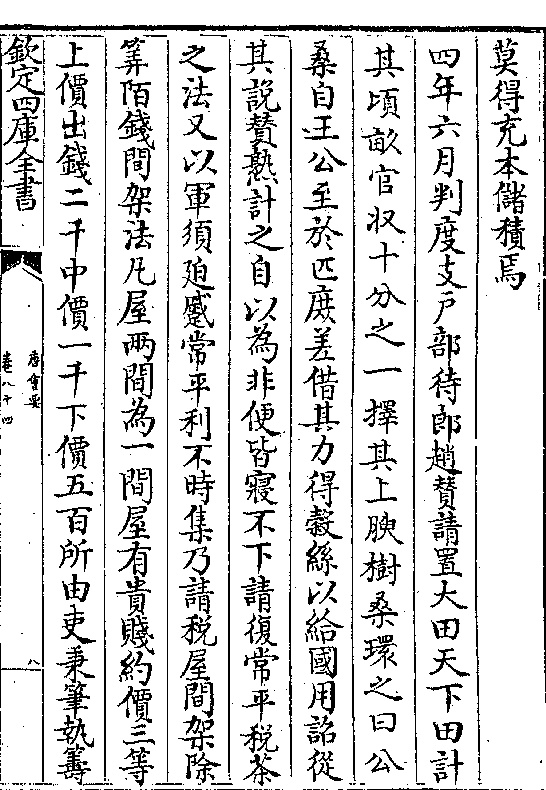 莫得充本儲積焉
四年六月判度支戶部待郎趙賛請置大田天下田計
其頃畝官收十分之一擇其上腴樹桑環之曰公
桑自王公至於匹庶差借其力得穀絲以給國用詔從
其説賛熟計之自以為非便皆寢不下請復常平稅茶
之法又以軍須廹蹙常平利不時集乃請稅屋間架除
筭陌錢間架法凡屋兩間為一間屋有貴賤約價三等
上價出錢二千中價一千下價五百所由吏秉筆執籌
欽定四庫全書
唐會要
卷八十四
八